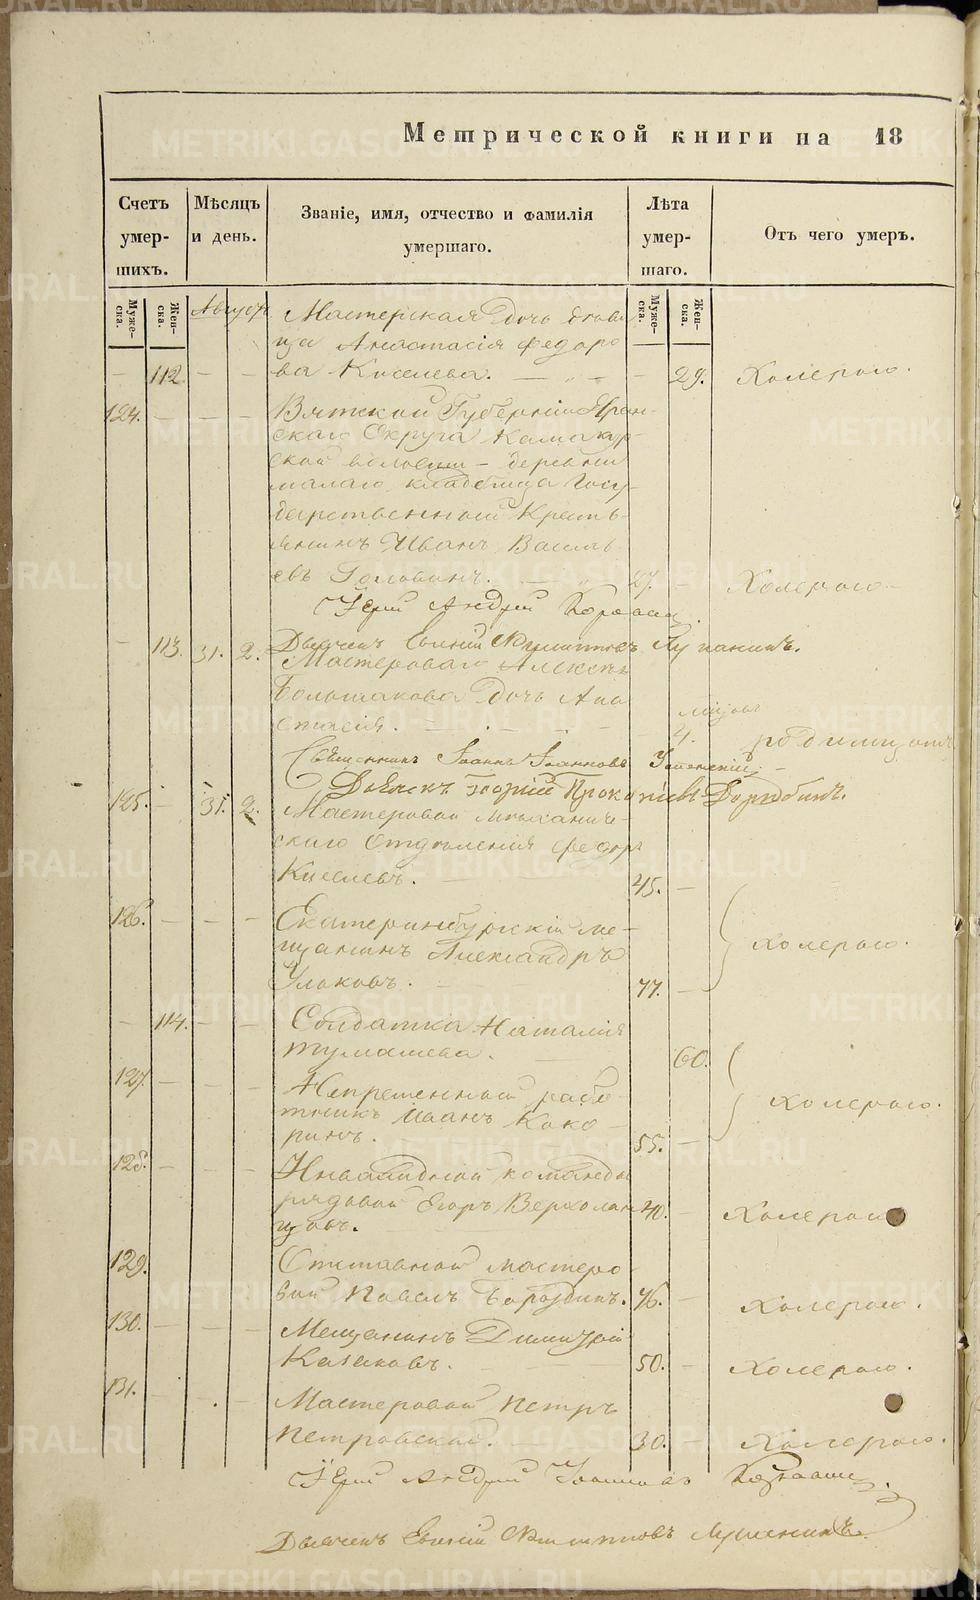 Метрической книги на 18
Счетъ умер-шихъ.
Мѣсяцъ и день.
Званіе, имя, отчество и фамилія умершаго.
Лѣта умер-шаго.
Отъ чего умеръ.
Муже-ска.
Жен-ска.
Муже-ска.
Жен-ска.
Августъ
Мастерская дочь вдови
ца Анастасія Федоро
112 ва Киселева. 29. Холерою.
124. Вятской Губерніи Яран-
скаго Округа
ской волости - деревни
малаго кладбища Госу-
дарственный Кресть-
янинъ Иванъ Василь
евъ Головинъ. 27. Холерою
Іерей Андрей
113. 31. 2. Дьячекъ Евгеній
Мастероваго Алексѣя
Большакова дочь Ана
стасія. 4. мѣсяц родимцомъ
Священникъ Іоаннъ Іоанновъ
Дьячекъ Георгій Прокопіевъ
125. 31. 2. Мастеровой механиче-
скаго Отдѣленія Федоръ
Киселевъ. 45.
126. Екатеринбургскій ме-
щанинъ Александръ Холерою.
Ушаковъ. 77.
114. Солдатка Наталія
Тумашева. 60.
127. Непременный рабо
тникъ Иванъ Коко- Холерою.
ринъ. 55.
128. Инвалидной команды
рядовой Егоръ Верхолан
цовъ. 40. Холерою
129. Отставной мастеро
вой Павелъ Бороздинъ. 76. Холерою.
130. Мещанинъ Димитрій
Казаковъ. 50. Холерою.
131. Мастеровой Петръ
Петровской. 30. Холерою.
Іерей Андрей Іоанновъ
Дьячекъ Евгеній
METRIKI.GASO-URAL.RU